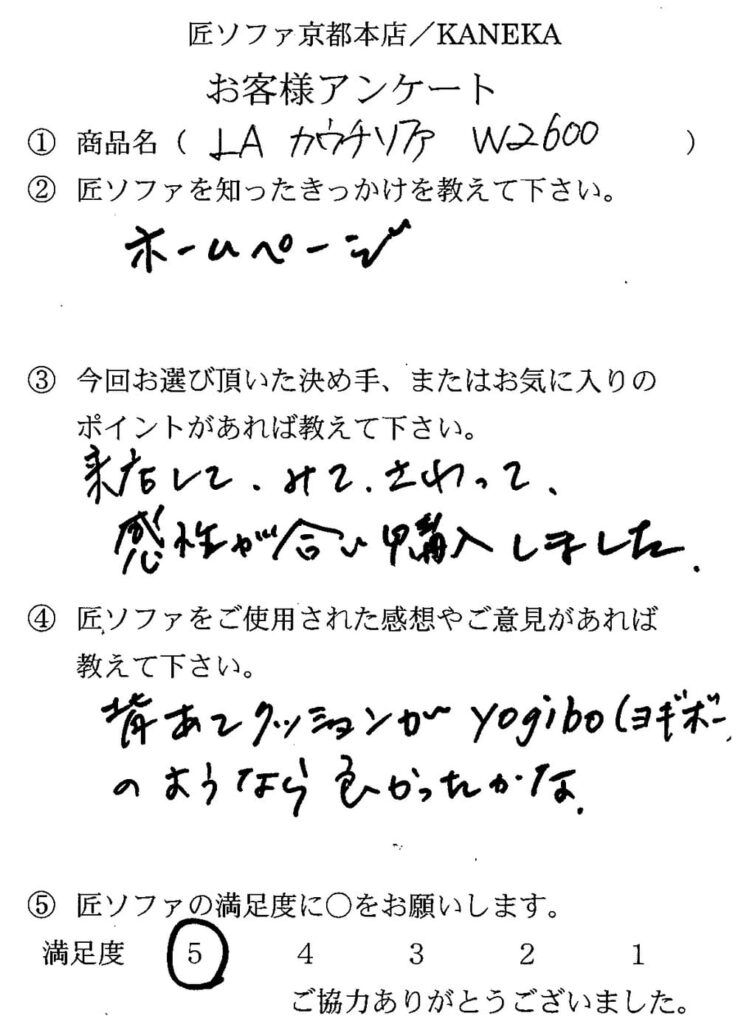 匠ソファ京都本店／KANEKA
お客様アンケート
① 商品名（ LA カウチソファ W2600 ）
② 匠ソファを知ったきっかけを教えて下さい。
ホームページ
③ 今回お選び頂いた決め手、またはお気に入りの
ポイントがあれば教えて下さい。
来店して、みて、さわって、
感性が合い購入しました。
④ 匠ソファをご使用された感想やご意見があれば
教えて下さい。
背あてクッションが yogibo（ヨギボー
のようなら良かったかな。
⑤ 匠ソファの満足度に○をお願いします。
満足度 5 4 3 2 1
ご協力ありがとうございました。